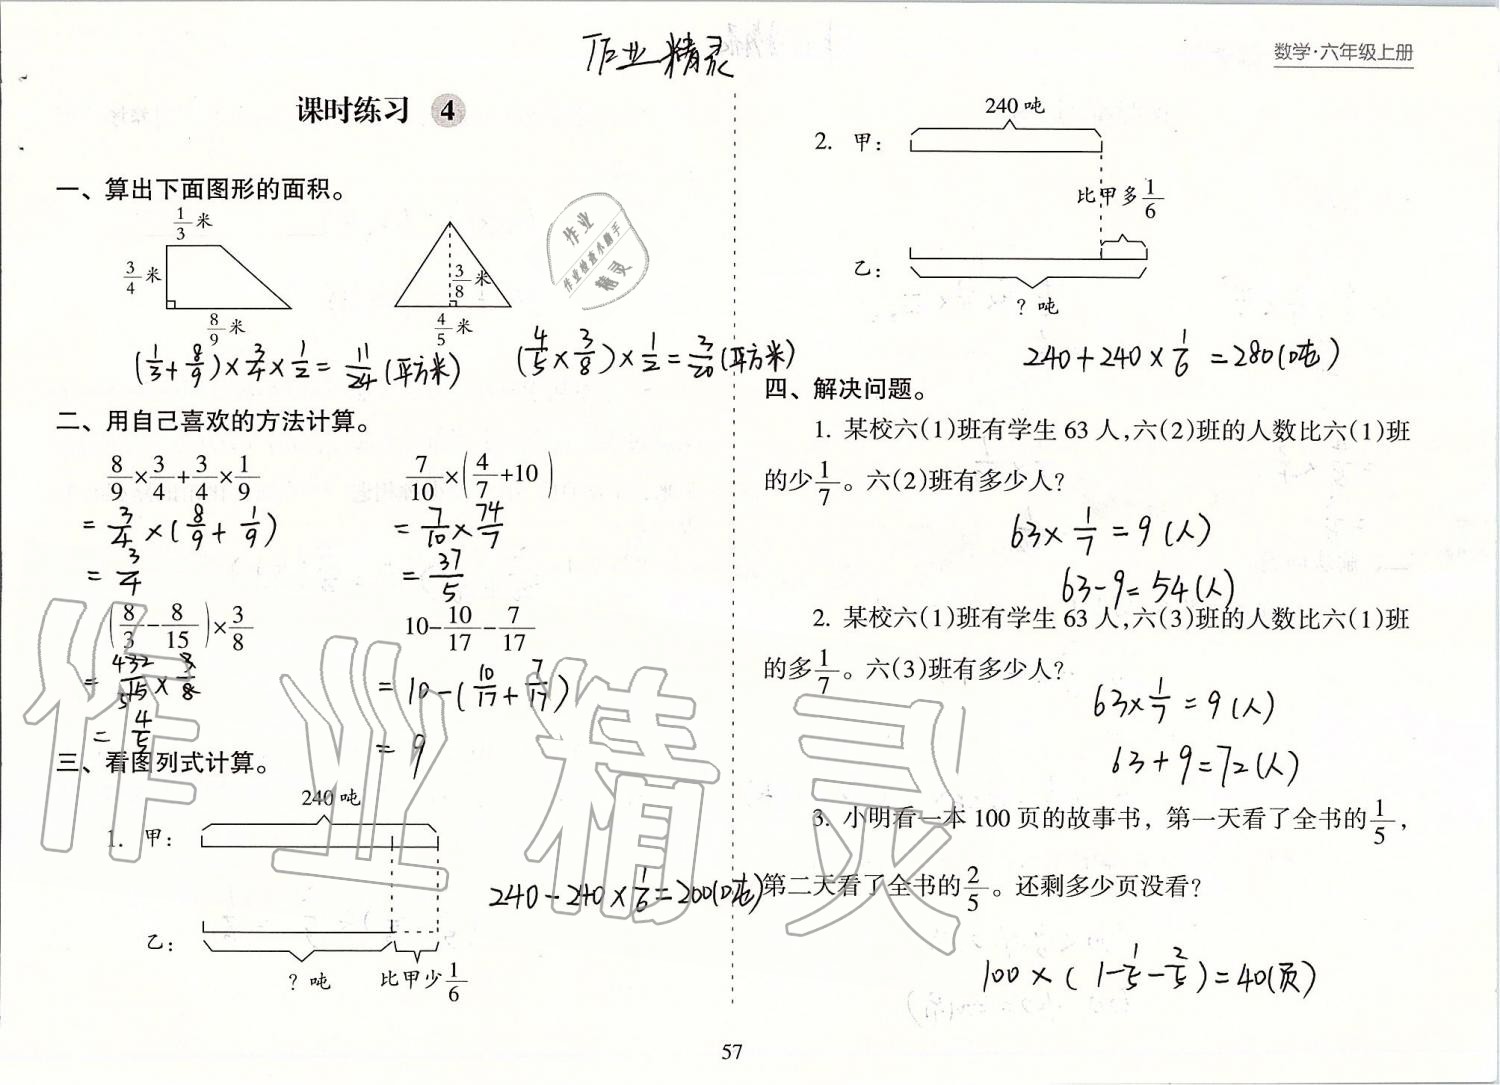 作业精灵
数学·六年级上册
课时练习 4
一、算出下面图形的面积。
1/3 米
3/4 米
8/9 米
3/8 米
4/5 米
作业
作业检查小助手
精灵
(1/3+8/9)×3/4×1/2=11/24(平方米)
(4/5×3/8)×1/2=3/20(平方米)
二、用自己喜欢的方法计算。
8/9×3/4+3/4×1/9
=3/4×(8/9+1/9)
=3/4
7/10×(4/7+10)
=7/10×74/7
=37/5
(8/3-8/15)×3/8
=32/15×3/8
=4/5
10-10/17-7/17
=10-(10/17+7/17)
=9
三、看图列式计算。
240 吨
1. 甲:
乙:
? 吨
比甲少1/6
240-240×1/6=200(吨)
240 吨
2. 甲:
比甲多1/6
乙:
? 吨
240+240×1/6=280(吨)
四、解决问题。
1. 某校六(1)班有学生 63 人,六(2)班的人数比六(1)班
的少1/7。六(2)班有多少人?
63×1/7=9(人)
63-9=54(人)
2. 某校六(1)班有学生 63 人,六(3)班的人数比六(1)班
的多1/7。六(3)班有多少人?
63×1/7=9(人)
63+9=72(人)
3. 小明看一本 100 页的故事书，第一天看了全书的1/5，
第二天看了全书的2/5。还剩多少页没看?
100×(1-1/5-2/5)=40(页)
作业精灵
57